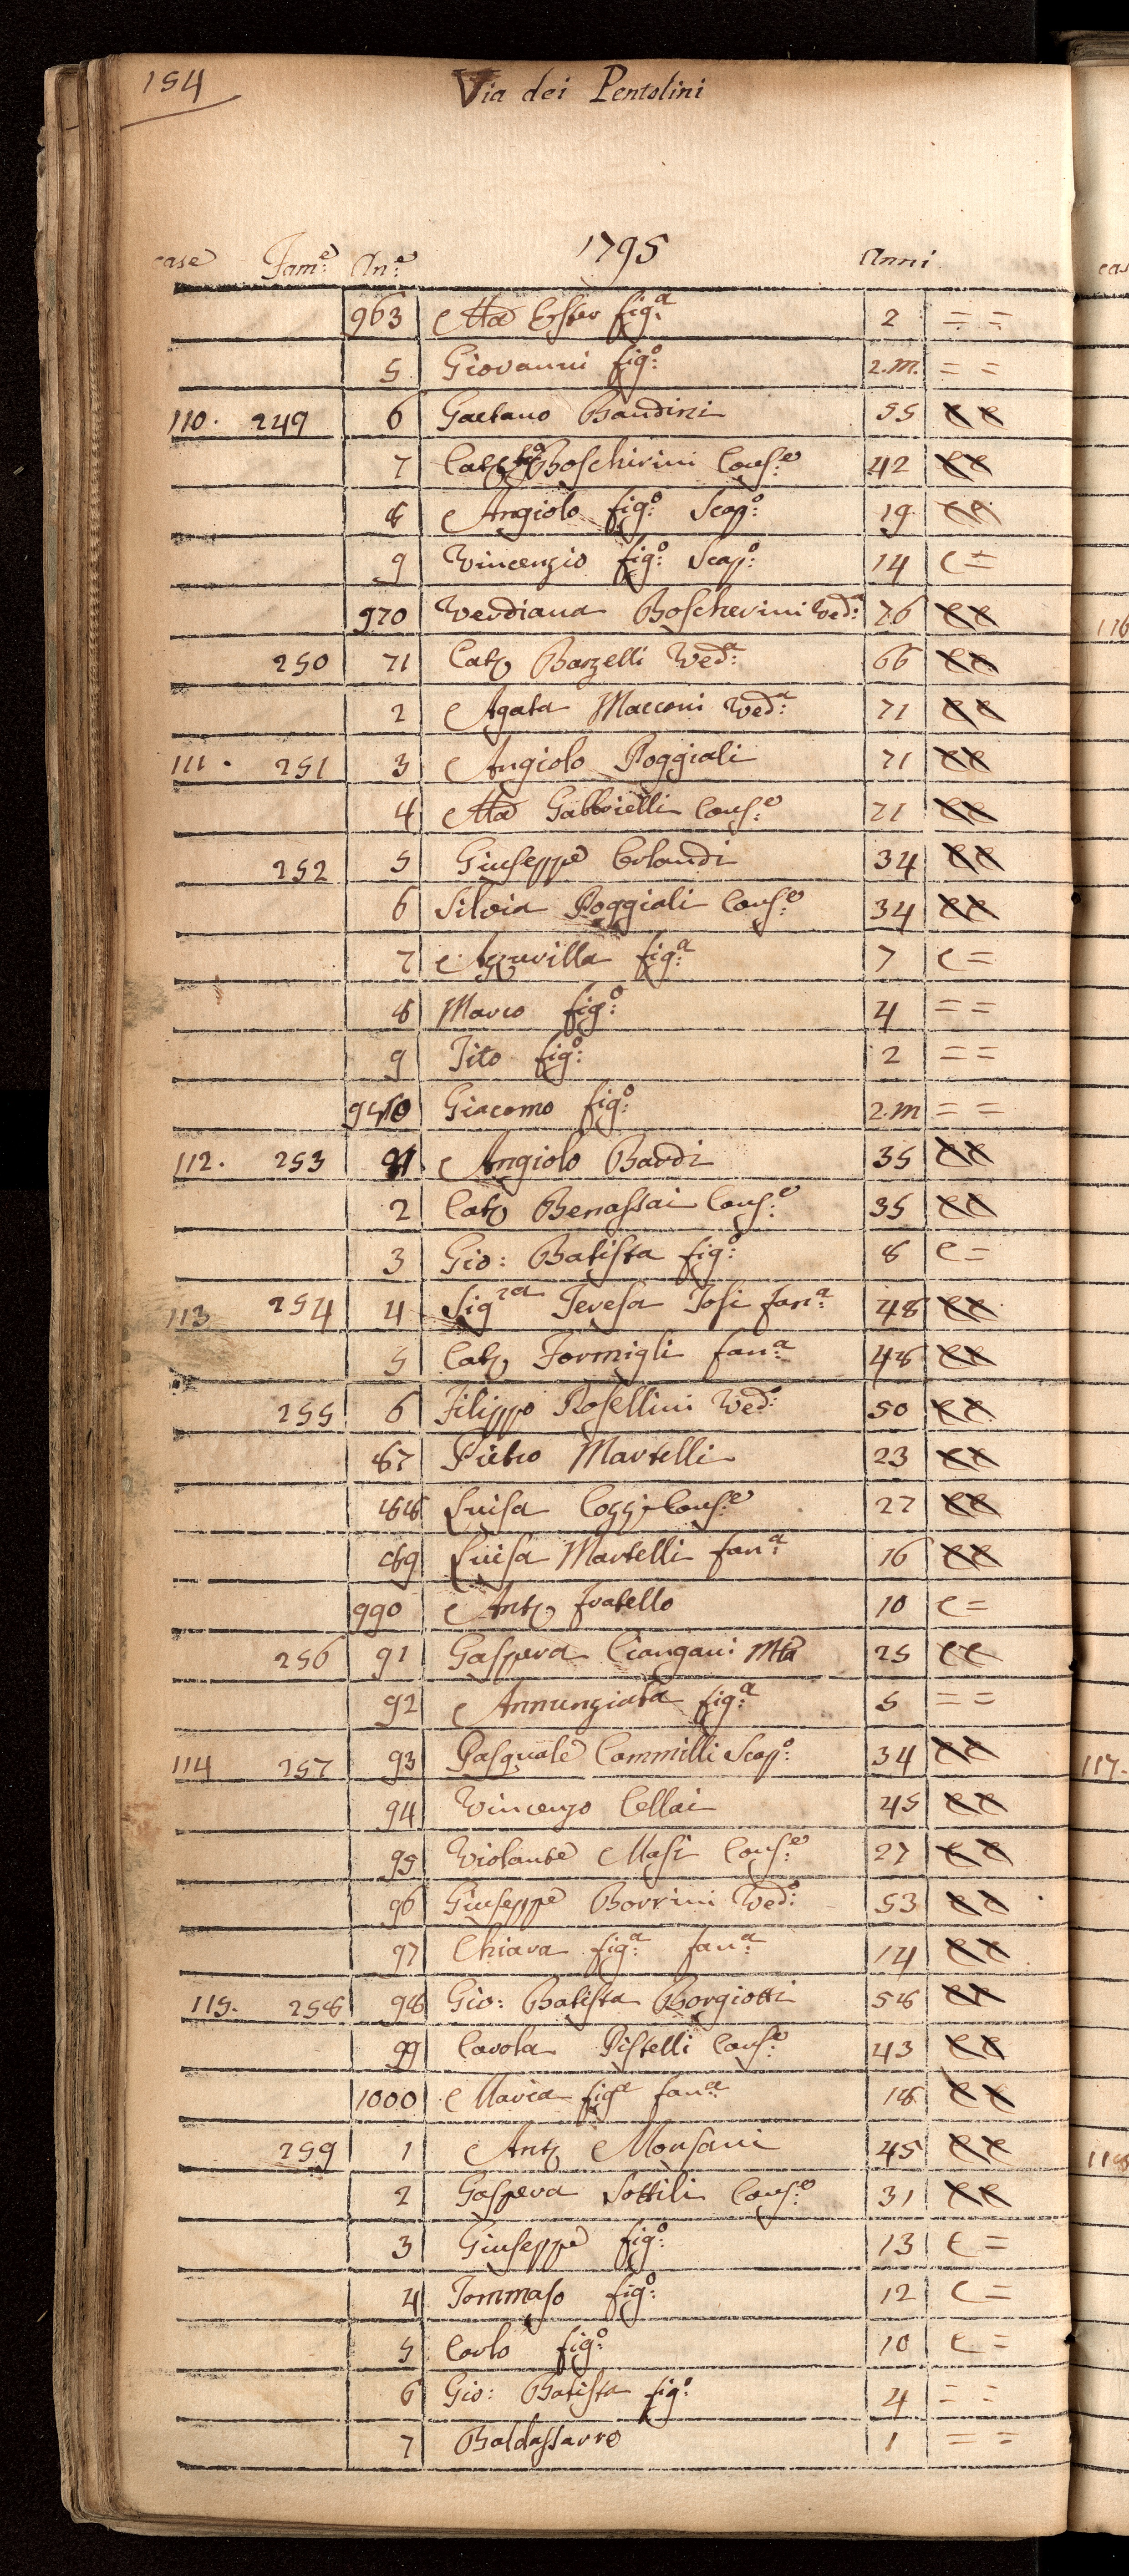 154
Via dei Pentolini
1795
case Fam:e An:e Anni
963 Ma Ester fig:a 2 = =
5 Giovanni fig:o 2.m. = =
110. 249 6 Gaetano Bandini 55 c c
7 Catª Boschirini Cons:e 42 c c
8 Angiolo fig:o Scap:o 19 c c
9 Vincenzio fig:o Scap:o 14 c =
970 Verdiana Boscherini Ved:a 76 c c
250 71 Catª Barzelli Ved:a 66 c c
2 Agata Macconi Ved:a 71 c c
111. 251 3 Angiolo Poggiali 71 c c
4 Ma Gabbrielli Cons:e 71 c c
252 5 Giuseppe Orlandi 34 c c
6 Silvia Poggiali Cons:e 34 c c
7 fig:a 7 c =
8 Marco fig:o 4 = =
9 Tito fig:o 2 = =
Giacomo fig:o 2.m = =
112. 253 Angiolo Bardi 35 c c
2 Catª Benassai Cons:e 35 c c
3 Gio: Batista fig:o 8 c =
113 254 4 Sigra Teresa Tosi fan:a 48 c c
5 Catª Formigli fan:a 48 c c
255 6 Filippo Rosellini Ved:o 50 c c
87 Pietro Martelli 23 c c
88 Luisa Cozzi Cons:e 27 c c
89 Luisa Martelli fan:a 16 c c
990 Antº fratello 10 c =
256 91 Gaspera Ciangani Mta 25 c c
92 Annunziata fig:a 5 = =
114 257 93 Pasquale Cammilli Scap:o 34 c c
94 Vincenzo Cellai 45 c c
95 Violante Masi Cons:e 27 c c
96 Giuseppe Borrini Ved:o 53 c c
97 Chiara fig:a fan:a 14 c c
115. 258 98 Gio: Batista Borgiotti 58 c c
99 Carola Pistelli Cons:e 43 c c
1000 Maria fig:a fan:a 18 c c
259 1 Antº Monsani 45 c c
2 Gaspera Sottili Cons:e 31 c c
3 Giuseppe fig:o 13 c =
4 Tommaso fig:o 12 c =
5 Carlo fig:o 10 c =
6 Gio: Batista fig:o 4 = =
7 Baldassarre 1 = =
116
117.